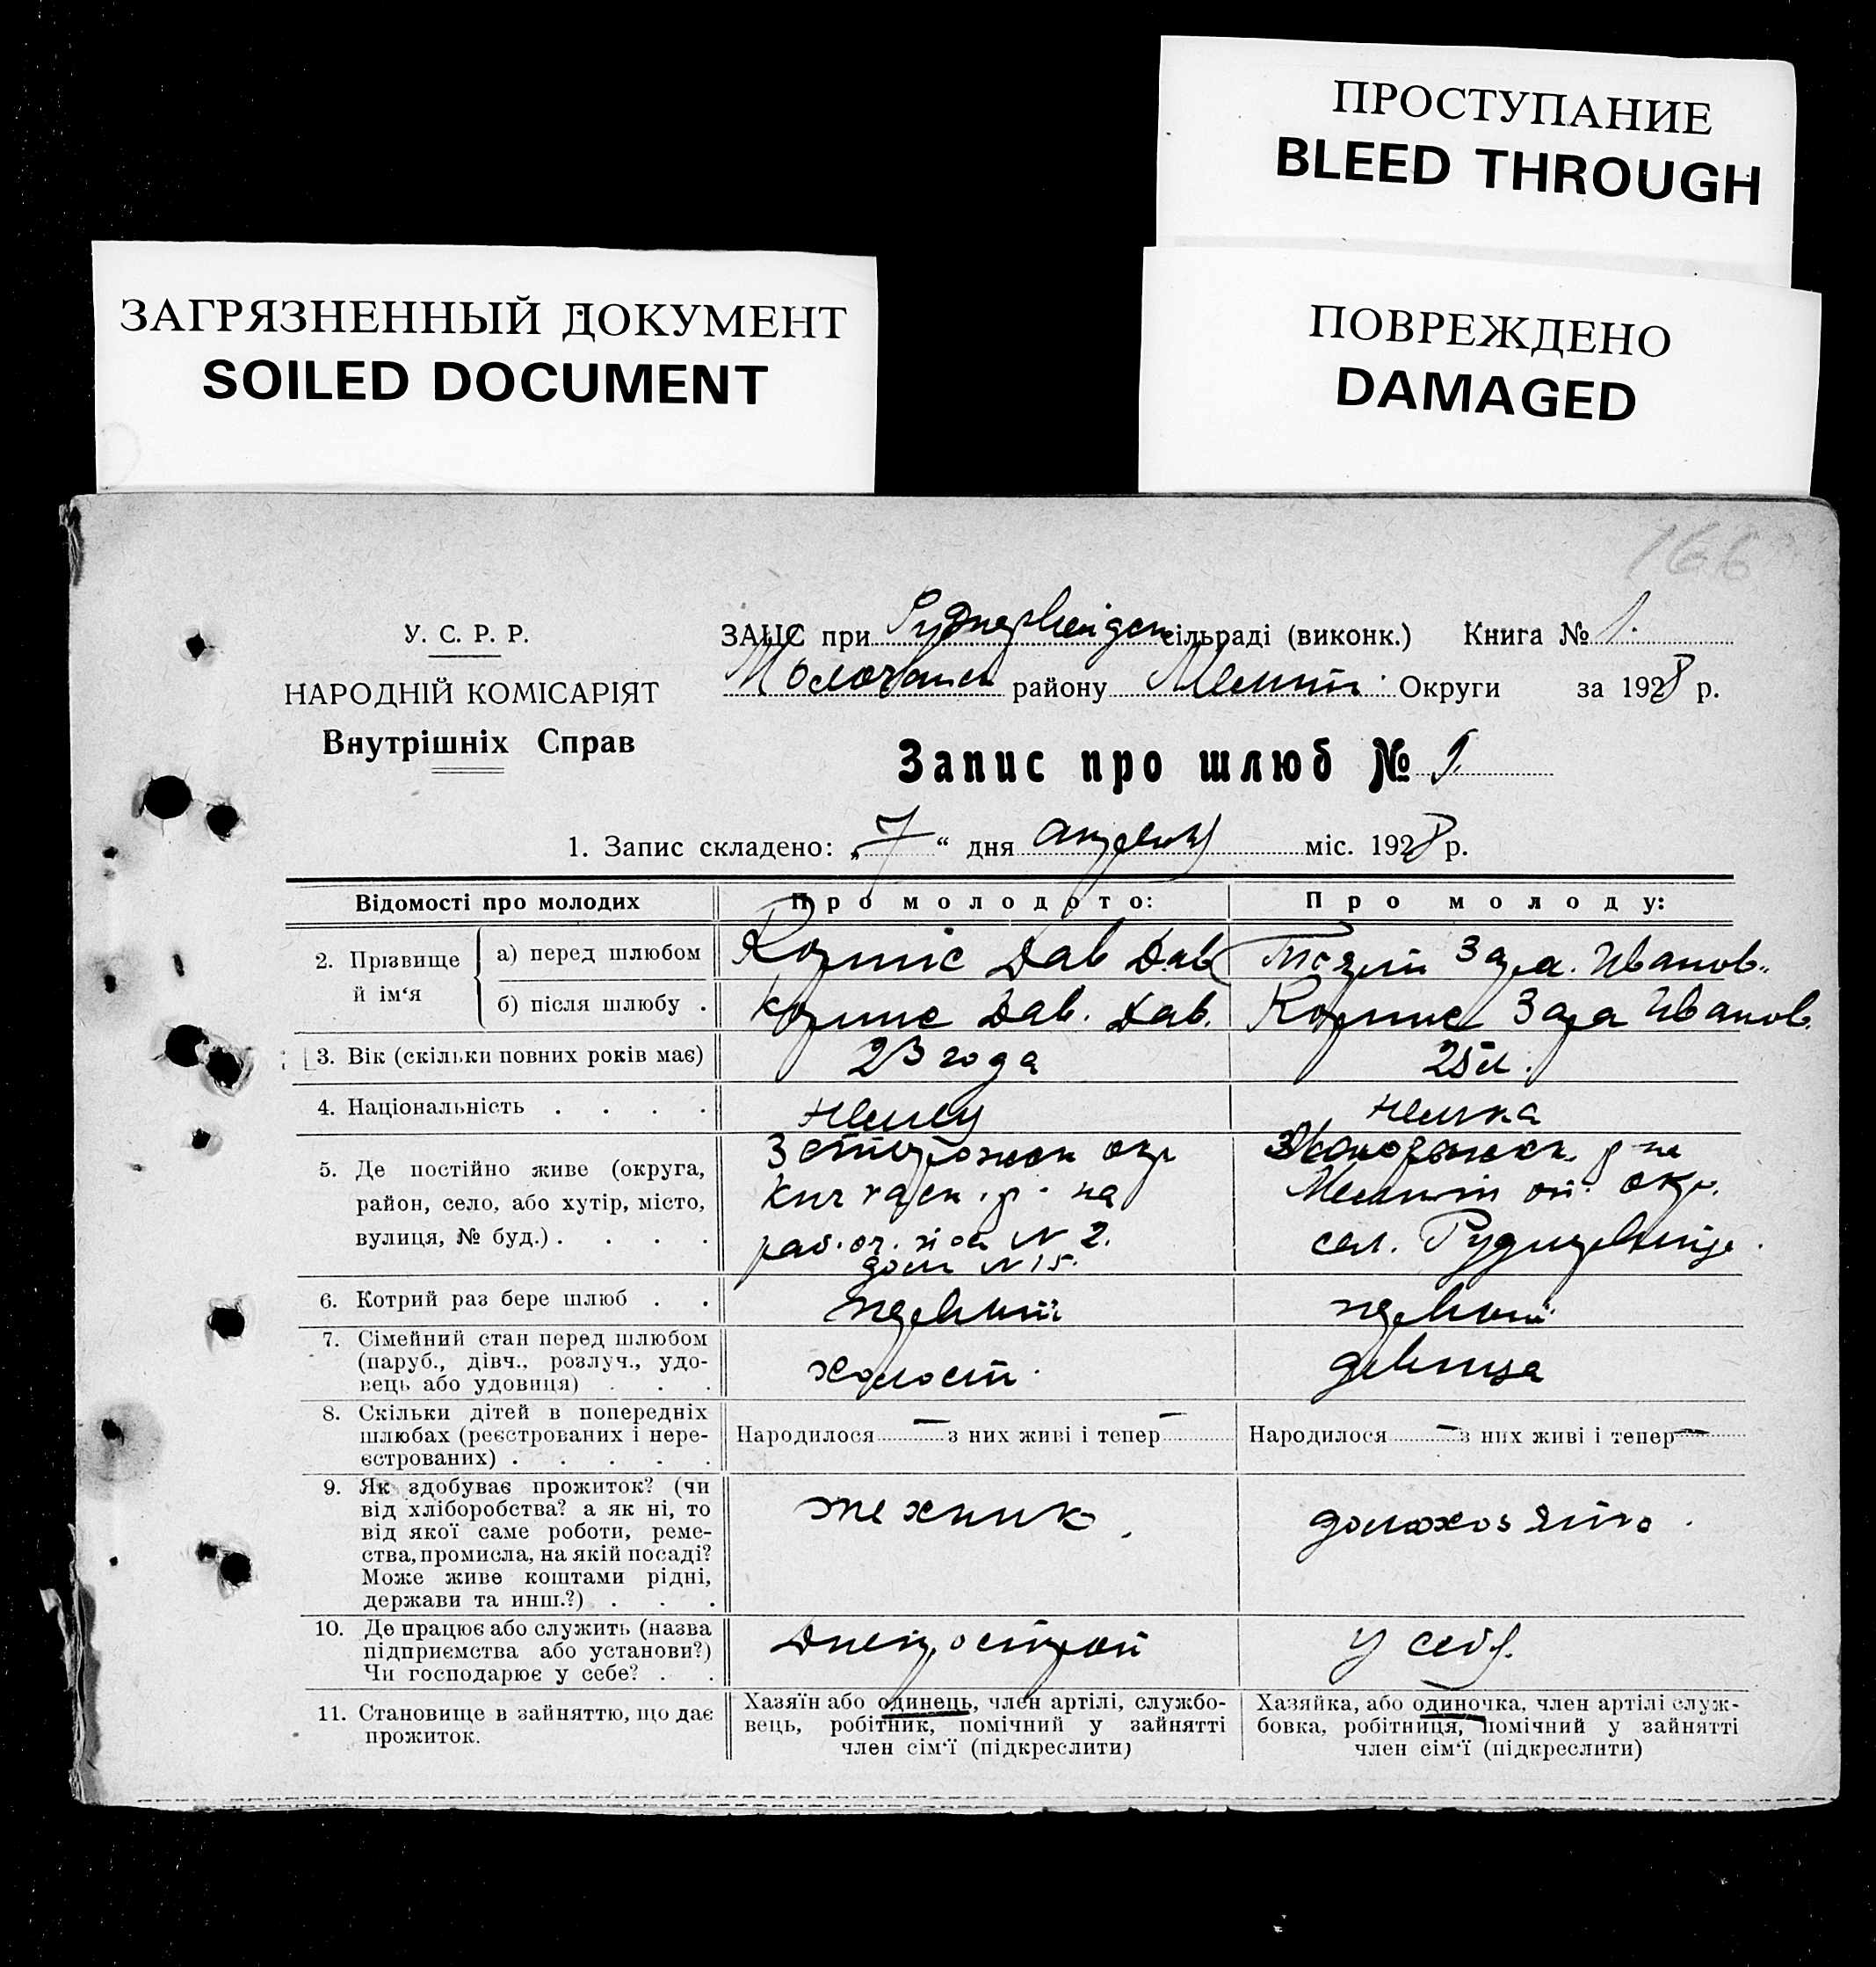 ПРОСТУПАНИЕ
BLEED THROUGH
ЗАГРЯЗНЕННЫЙ ДОКУМЕНТ
SOILED DOCUMENT
ПОВРЕЖДЕНО
DAMAGED
166
У. С. Р. Р.
НАРОДНІЙ КОМІСАРІЯТ
Внутрішніх Справ
ЗАЦС при сільраді (виконк.) Книга № 1.
Молочанск району Мелит. Округи за 1928 р.
Запис про шлюб №
1. Запис складено: „7“ дня міс. 1928 р.
Відомості про молодих
Про молодого:
Про молоду:
2. Прізвище й ім‘я
а) перед шлюбом
Дав Дав
Иванов.
б) після шлюбу .
Дав. Дав.
Иванов.
3. Вік (скільки повних років має)
23 года
25 л.
4. Національність . . . .
немец
немка
5. Де постійно живе (округа,
район, село, або хутір, місто,
вулиця, № буд.) . . . .
Запорожск окр
Кичкаск. р-на
раб. N 2.
дом N 15.
р-на
окр.
сел.
6. Котрий раз бере шлюб . .
первый
первый
7. Сімейний стан перед шлюбом
(паруб., дівч., розлуч., удо-
вець або удовиця) . . .
холост.
девица
8. Скільки дітей в попередніх
шлюбах (реєстрованих і нере-
єстрованих) . . . . .
Народилося — з них живі і тепер —
Народилося — з них живі і тепер —
9. Як здобуває прожиток? (чи
від хліборобства? а як ні, то
від якої саме роботи, реме-
ства, промисла, на якій посаді?
Може живе коштами рідні,
держави та инш.?) . . .
техник.
10. Де працює або служить (назва
підприємства або установи?)
Чи господарює у себе? . .
Днепрострой
у себя.
11. Становище в зайняттю, що дає
прожиток.
Хазяїн або одинець, член артілі, службо-
вець, робітник, помічний у зайнятті
член сім‘ї (підкреслити)
Хазяйка, або одиночка, член артілі служ-
бовка, робітниця, помічний у зайнятті
член сім‘ї (підкреслити)